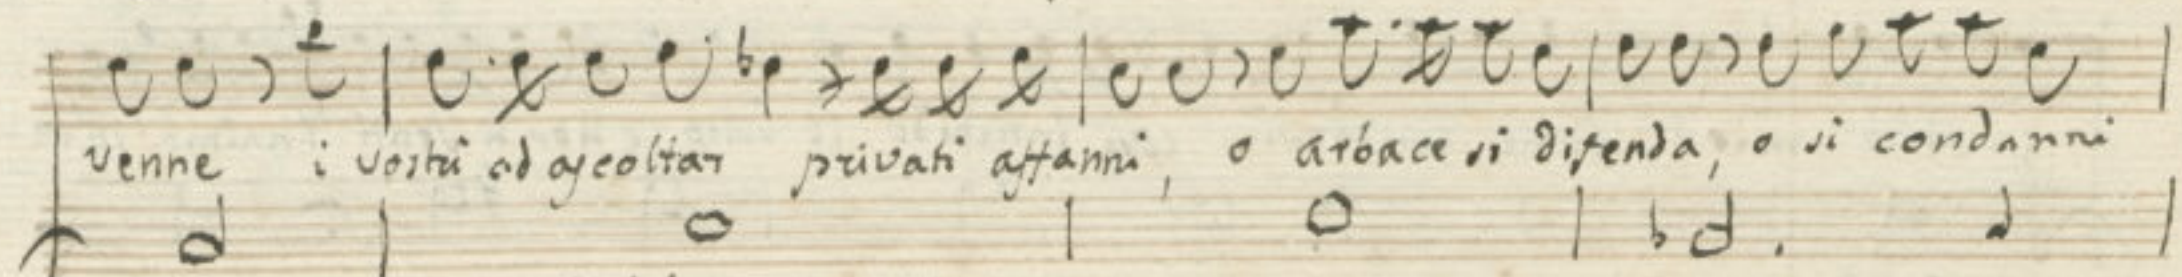 venne i vostri ad ascoltar privati affanni, o arbace si difenda, o si condanni